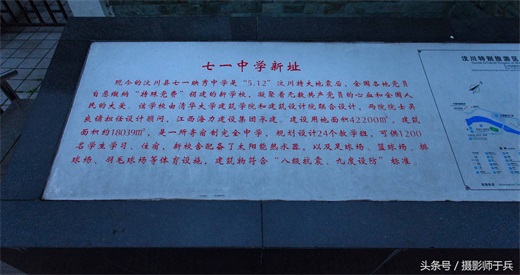 七一中学新址
现今的汶川县七一映秀中学是“5.12”汶川特大地震后，全国各地党员
自愿缴纳“特殊党费”捐建的新学校，凝聚着无数共产党员的心血和全国人
民的大爱。该学校由清华大学建筑学院和建筑设计院联合设计，两院院士吴
良镛担任设计顾问，江西洛力建设集团承建。建设用地面积42200m²，建筑
面积约18039m²，是一所寄宿制完全中学，规划设计24个教学班，可供1200
名学生学习、住宿，新校舍配备了太阳能热水器，以及足球场、篮球场、排
球场、羽毛球场等体育设施，建筑物符合“八级抗震、九度设防”标准。
汶川特别旅游区
头条号 / 摄影师于兵